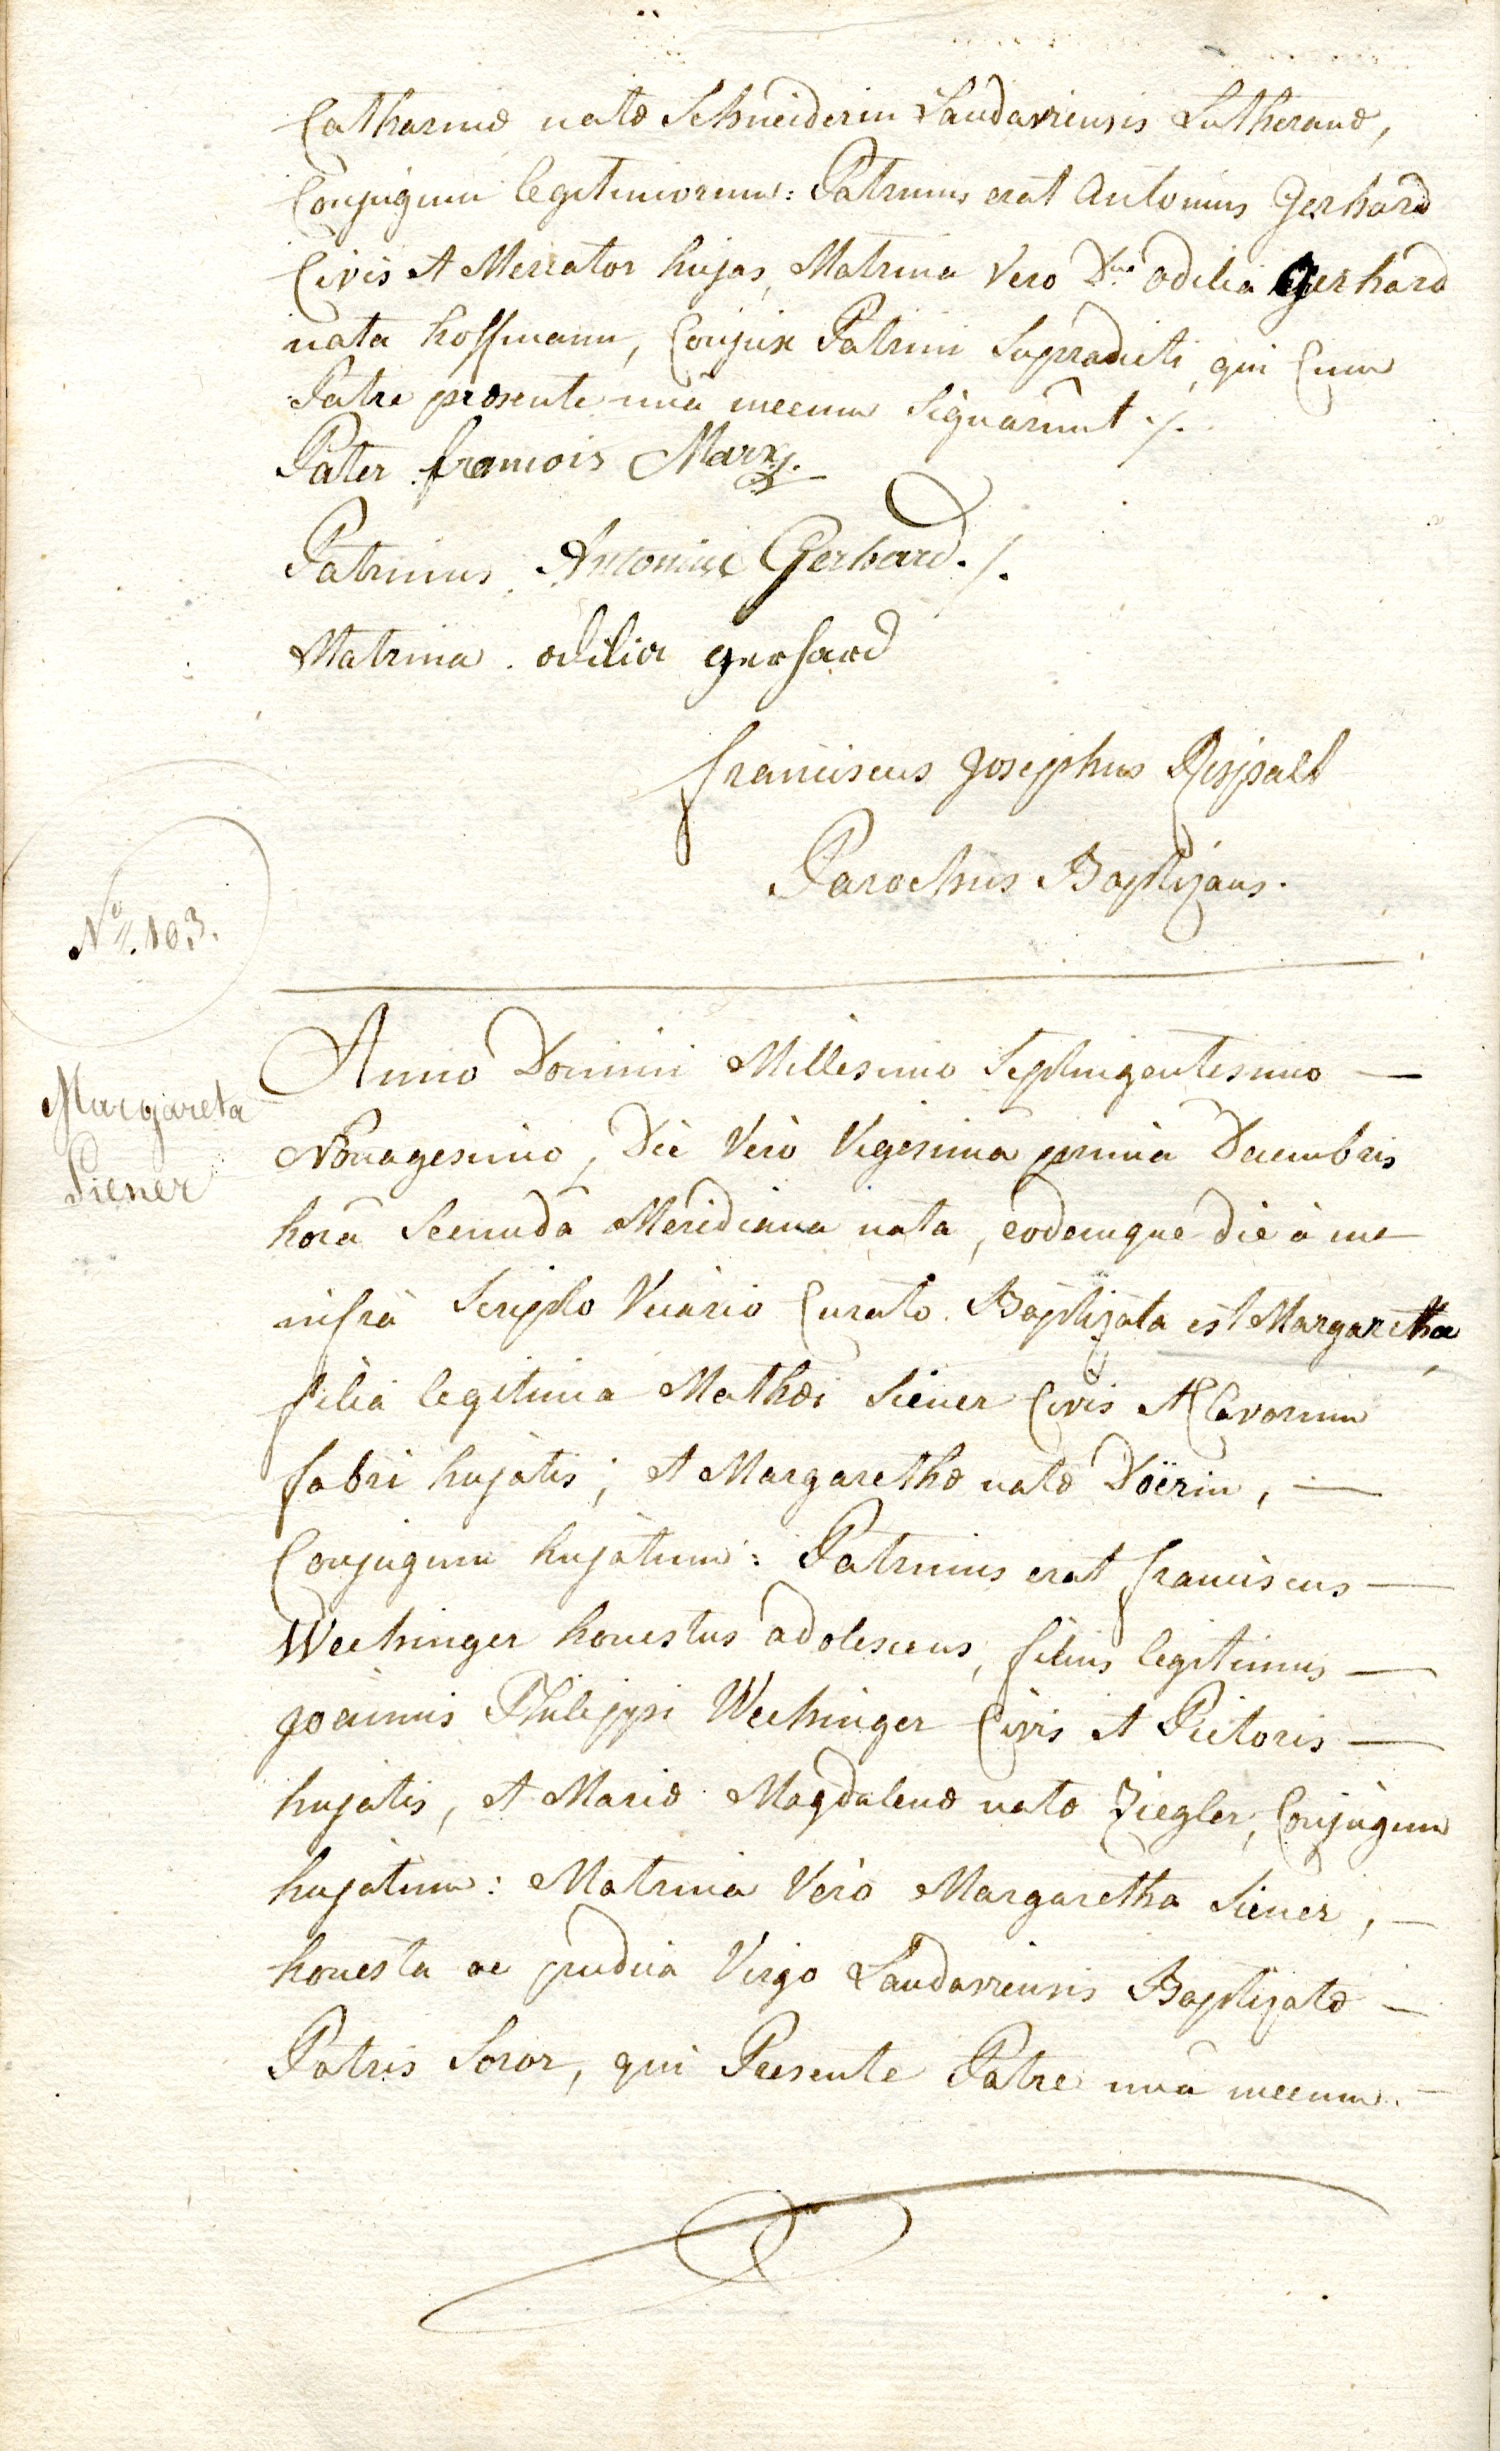 Catharinæ natæ Schneiderin Landaviensis Lutheranæ,
Conjugum legitimorum: Patrinus erat Antonius Gerhard
Civis et Mercator hujas, Matrina Vero D.na Odilia Gerhard
nata Hoffmann, Conjux Patrini Supradicti, qui Cum
Patre præsente unà mecum Signarunt ./.
Pater francois Marx.
Patrinus Antonius Gerhard ./.
Matrina odilia gerhard
franciscus Josephus Rispalt
Parochus Baptizans.
No. 103.
Margareta
Siener
Anno Domini Millesimo Septingentesimo —
Nonagesimo, Die Verò Vigesima prima Decembris
horâ Secundâ Meridiana nata, eodemque die à me
infrà Scripto Vicario Curato Baptizata est Margaretha
filia legitima Mathæi Siener Civis et Clavorum
fabri hujatis; et Margarethæ natæ Döerin, —
Conjugum hujatum: Patrinus erat franciscus —
Wechinger honestus adolescens, filius legitimus —
Joannis Philippi Wechinger Civis et Pictoris —
hujatis, et Mariæ Magdalenæ natæ Ziegler, Conjugum
hujatum: Matrina Verò Margaretha Siener, —
honesta ac pudica Virgo Landaviensis Baptizatæ —
Patris Soror, qui Presente Patre unà mecum. —